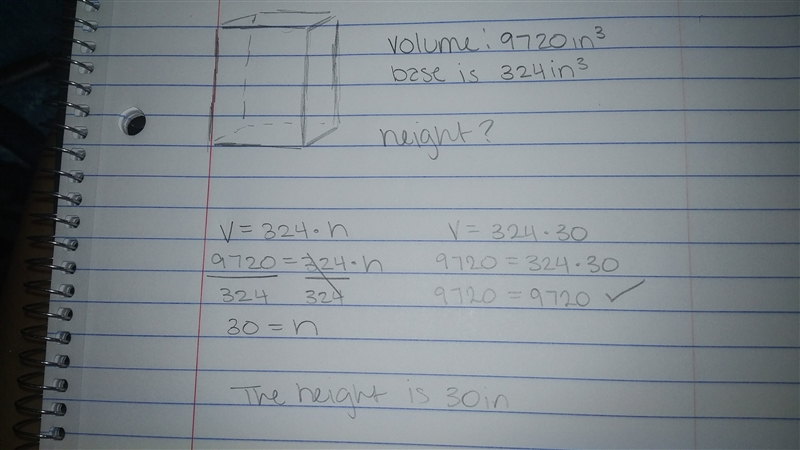 volume: 9720in³
base is 324in³
height?
V = 324 · h
9720 = 324 · h
324 324
30 = h
V = 324 · 30
9720 = 324 · 30
9720 = 9720 ✓
The height is 30in